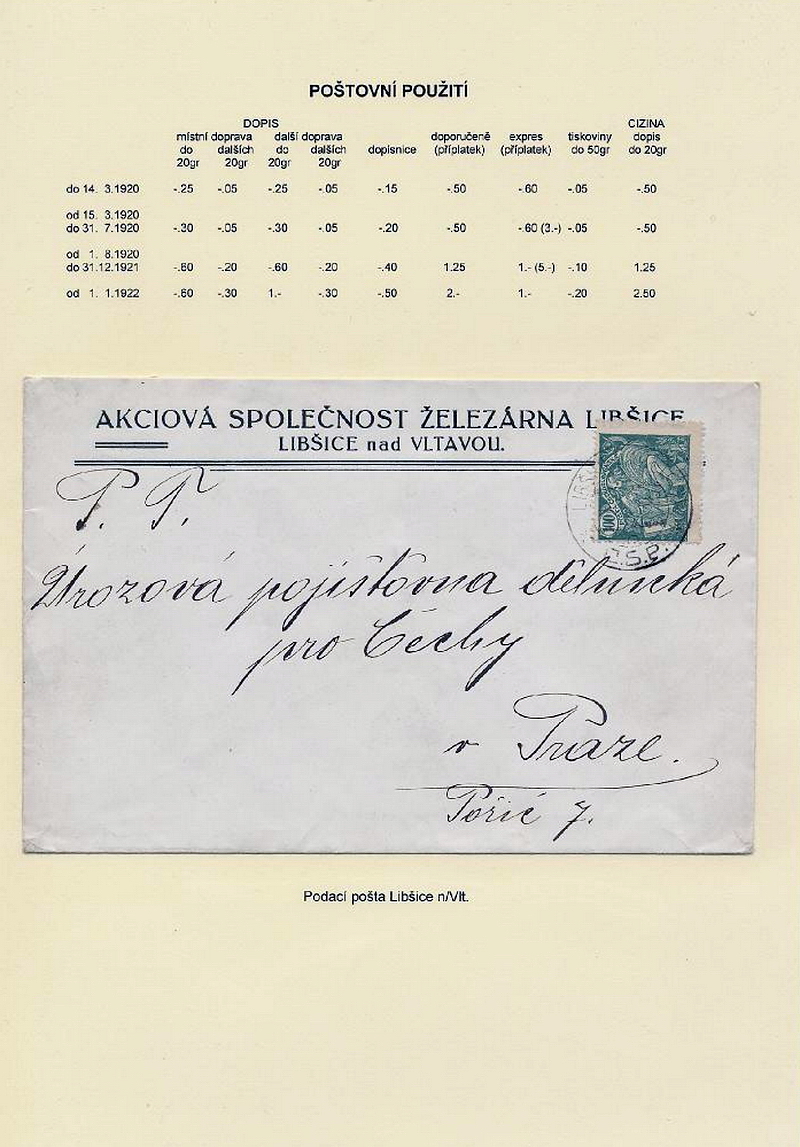 POŠTOVNÍ POUŽITÍ
DOPIS CIZINA
místní doprava další doprava doporučeně expres tiskoviny dopis
do dalších do dalších dopisnice (příplatek) (příplatek) do 50gr do 20gr
20gr 20gr 20gr 20gr
do 14. 3.1920 -.25 -.05 -.25 -.05 -.15 -.50 -.60 -.05 -.50
od 15. 3.1920
do 31. 7.1920 -.30 -.05 -.30 -.05 -.20 -.50 -.60 (3.-) -.05 -.50
od 1. 8.1920
do 31.12.1921 -.60 -.20 -.60 -.20 -.40 1.25 1.- (5.-) -.10 1.25
od 1. 1.1922 -.60 -.30 1.- -.30 -.50 2.- 1.- -.20 2.50
AKCIOVÁ SPOLEČNOST ŽELEZÁRNA LIBŠICE
LIBŠICE nad VLTAVOU.
100
Č.S.P.
P. T.
Úrazová pojišťovna dělnická
pro Čechy
v Praze.
Poříč 7.
Podací pošta Libšice n/Vlt.